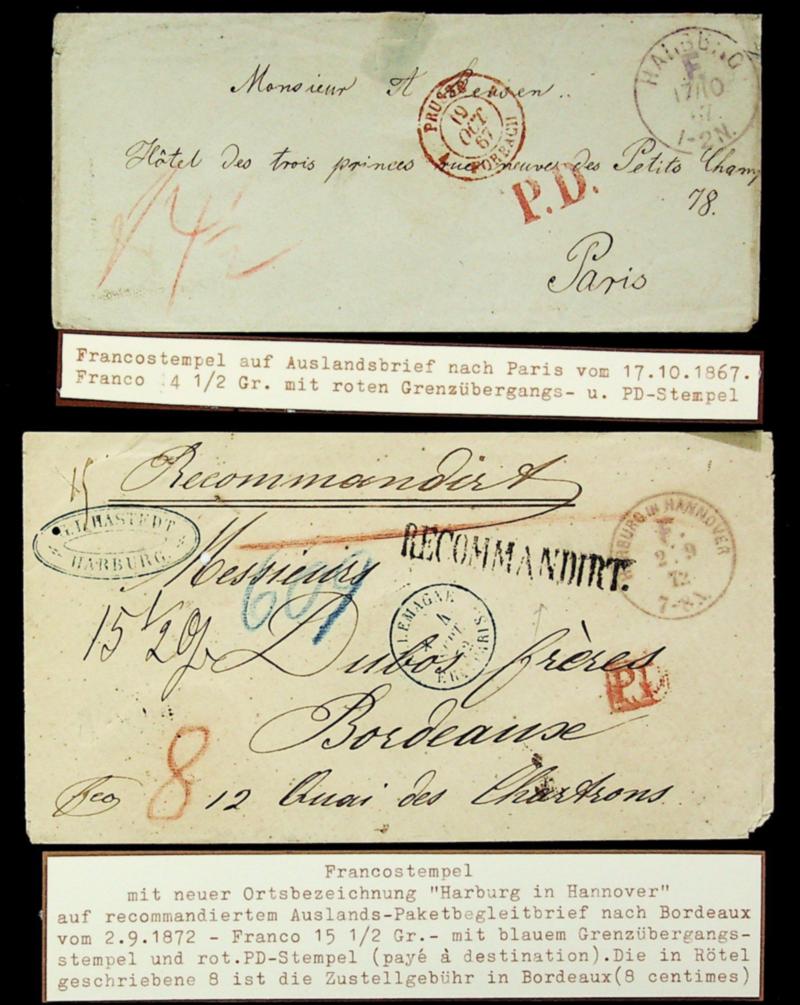 HARBURG
F.
17/10
67
1-2N.
Monsieur A
PRUSSE
19
OCT
67
FORBACH
Hôtel des trois princes rue neuve des Petits Champ
P.D.
78.
4 1/2
Paris
Francostempel auf Auslandsbrief nach Paris vom 17.10.1867.
Franco 4 1/2 Gr. mit roten Grenzübergangs- u. PD-Stempel
Recommandirt
HASTEDT
HARBURG.
RECOMMANDIRT.
HARBURG IN HANNOVER
F.
2 9
72
7-8
Messieurs
609
15 1/2 Gr
4
Dubos frères
P.D.
Bordeaux
fco 8 12 Quai des Chartrons
Francostempel
mit neuer Ortsbezeichnung "Harburg in Hannover"
auf recommandiertem Auslands-Paketbegleitbrief nach Bordeaux
vom 2.9.1872 - Franco 15 1/2 Gr.- mit blauem Grenzübergangs-
stempel und rot.PD-Stempel (payé à destination).Die in Rötel
geschriebene 8 ist die Zustellgebühr in Bordeaux(8 centimes)